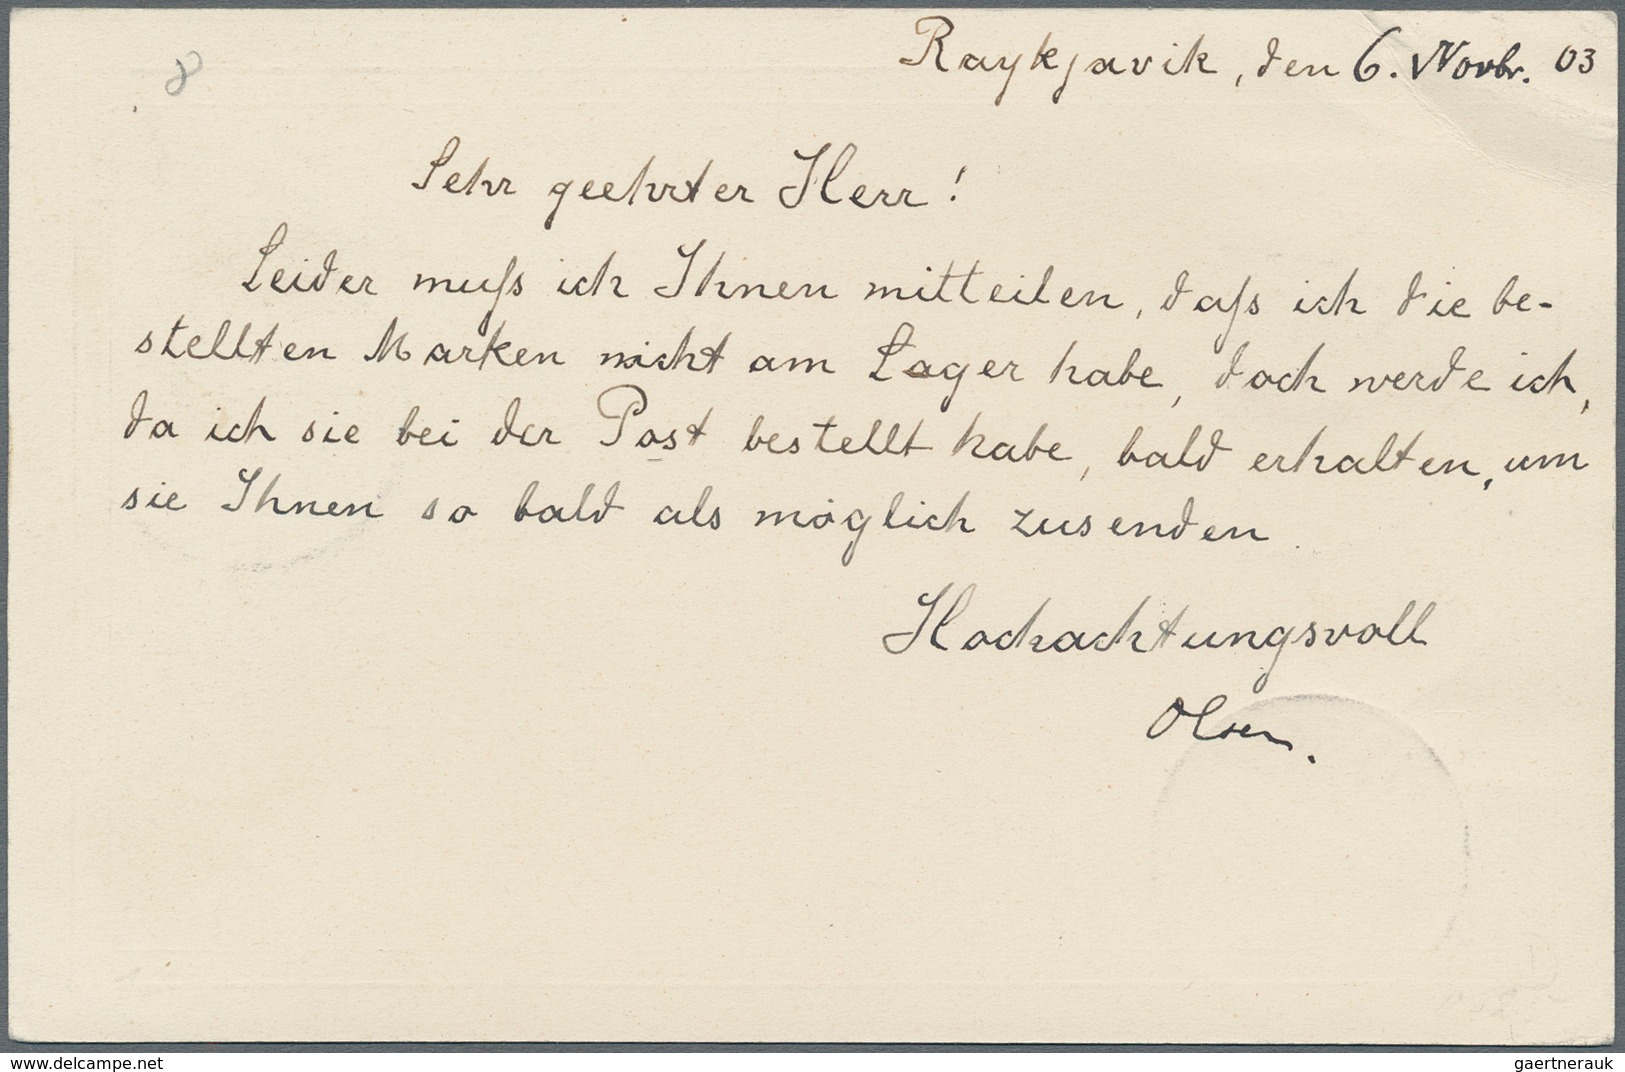 Raykjavik, den 6. Novbr. 03
8
Sehr geehrter Herr!
Leider muß ich Ihnen mitteilen, daß ich die be-
stellten Marken nicht am Lager habe, doch werde ich,
da ich sie bei der Post bestellt habe, bald erhalten, um
sie Ihnen so bald als möglich zusenden.
Hochachtungsvoll
Olsen.
www.delcampe.net
gaertnerauk